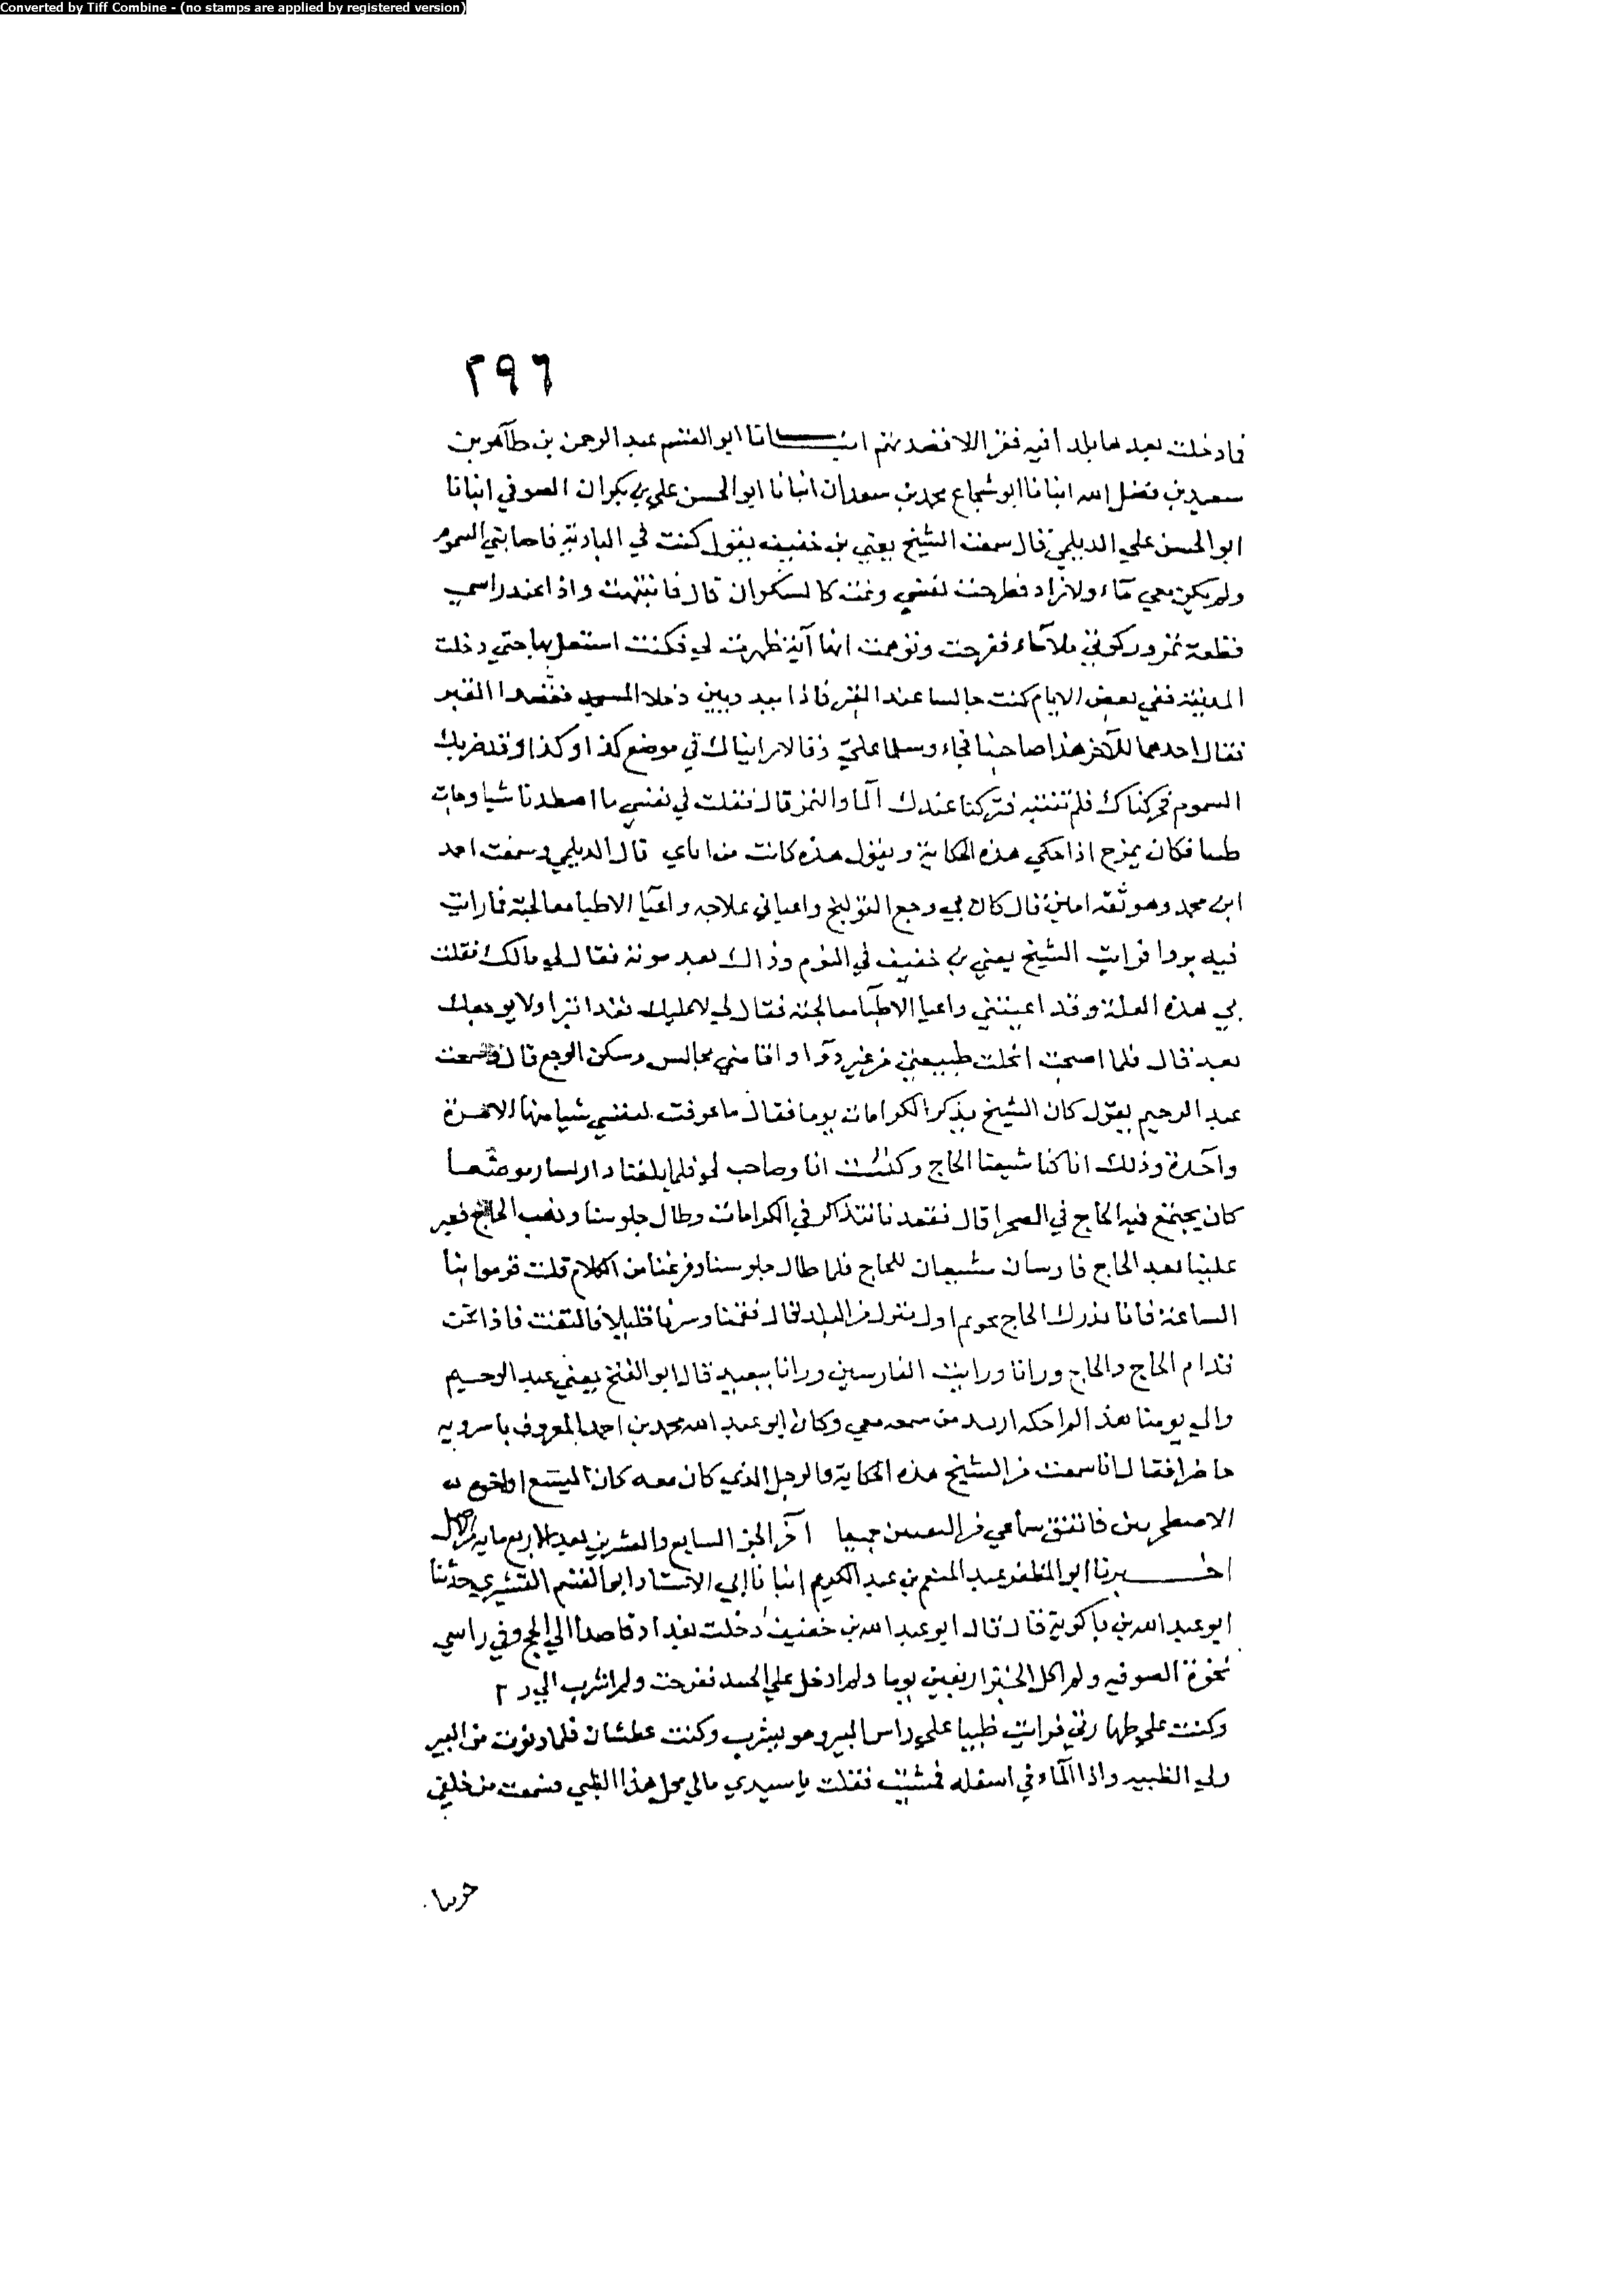 Converted by Tiff Combine - (no stamps are applied by registered version)
٢٩٦
فادخلت بعدها بلدا فيه فقرا الا قصدتهم انبانا ابو القسم عبد الرحمن بن طاهر بن
سعيد بن فضل الله انبانا ابو شجاع محمد بن سعدان انبانا ابو الحسن علي بن بكران الصوفي انبانا
ابو الحسن علي الديلمي قال سمعت الشيخ يعني بن خفيف يقول كنت في البادية فاصابني السموم
ولم يكن معي ماء ولا زاد فطرحت نفسي ونمت كالسكران قال فانتبهت واذا عند راسي
قطعة تمر وركوتي ملآ ماء ففرحت وتوهمت انها آية ظهرت لي فكنت استعملها حتي دخلت
المدينة ففي بعض الايام كنت جالسا عند القبر فاذا ببدويين دخلا المسجد فقصدا القبر
فقال احدهما للآخر هذا صاحبنا فجاء وسلما علي وقالا رايناك في موضع كذا وكذا وقد ضربك
السموم فحركناك فلم تنتبه فتركنا عندك الما والتمر قال فقلت لي نفسي ما اصطدنا شيا وكان
طيبا فكان يمزح اذا حكي هذه الحكاية ويقول هذه كانت من اياتي قال الديلمي وسمعت احمد
ابن محمد وهو ثقة امين قال كان بي وجع القولنج واعياني علاجه واعيا الاطبا معالجته فما رايت
فيه بروا فرايت الشيخ يعني بن خفيف في النوم وذاك بعد موته فقال لي مالك فقلت
بي هذه العلة وقد اعيتني واعيا الاطبا معالجته فقال لي لا عليك فغدا تبرا ولا يوجعك
بعد قال فلما اصبحت انحلت طبيعتي من غير دوا واقامني مجالس وسكن الوجع قال وسمعت
عبد الرحيم يقول كان الشيخ يذكر الكرامات يوما فقال ما عرفت لنفسي شيا منها الا مرة
واحدة وذلك انا كنا شيعنا الحاج وكنت انا وصاحب لي فلما بلغنا دار موضعا
كان يجتمع فيه الحاج في الصحرا قال فقعدنا نتذاكر في الكرامات وطال جلوسنا وذهب الحاج فعبر
علينا بعد الحاج فارسان مشيعان للحاج فلما طال جلوسنا وفرغنا من الكلام قلت قوموا بنا
الساعة فانا ندرك الحاج اول منزل من البلد قال فقمنا وسرنا قليلا فالتفت فاذا نحن
قدام الحاج والحاج ورانا ورايت الفارسين ورانا ببعيد قال ابو الفتح يعني عبد الرحيم
والي يومنا هذا لم احكه اريد من سمعه معي وكان ابو عبد الله محمد بن احمد المعروف
حاضرا فقال انا سمعت من الشيخ هذه الحكاية والرجل الذي كان معه كان
فاتفق سماعي من جميعا آخر الجز السابع والعشرين بعد الاربع مايه من الاصل
اخبرنا ابو المظفر عبد المنعم بن عبد الكريم انبانا ابي الاستاد ابو القسم القشيري حدثنا
ابو عبد الله بن باكوية قال قال ابو عبد الله بن خفيف دخلت بغداد قاصدا الي الحج وفي راسي
نخوة الصوفيه ولم اكل الخبز اربعين يوما ولم ادخل علي الجنيد فخرجت ولم اشرب الي
وكنت علي طهارتي فرايت ظبيا علي راس البير وهو يشرب وكنت عطشان فلما دنوت من البير
ولي الظبي واذا الماء في اسفله فمشيت فقلت يا سيدي مالي محل هذا الظبي فسمعت من خلفي